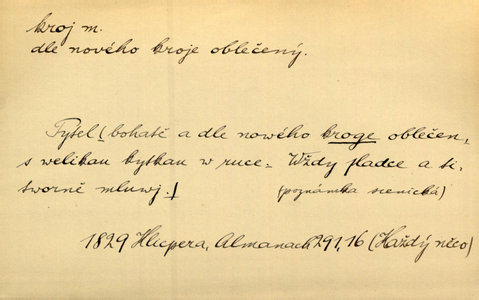 kroj m.
dle nového kroje oblečený.
Pytel (bohatě a dle nowého kroge oblečen,
s welikau kytkau w ruce. Wždy sladce a si-
tworně mluwj.)
(poznámka scenická)
1829 Klicpera, Almanach 291, 16 (Každý něco)